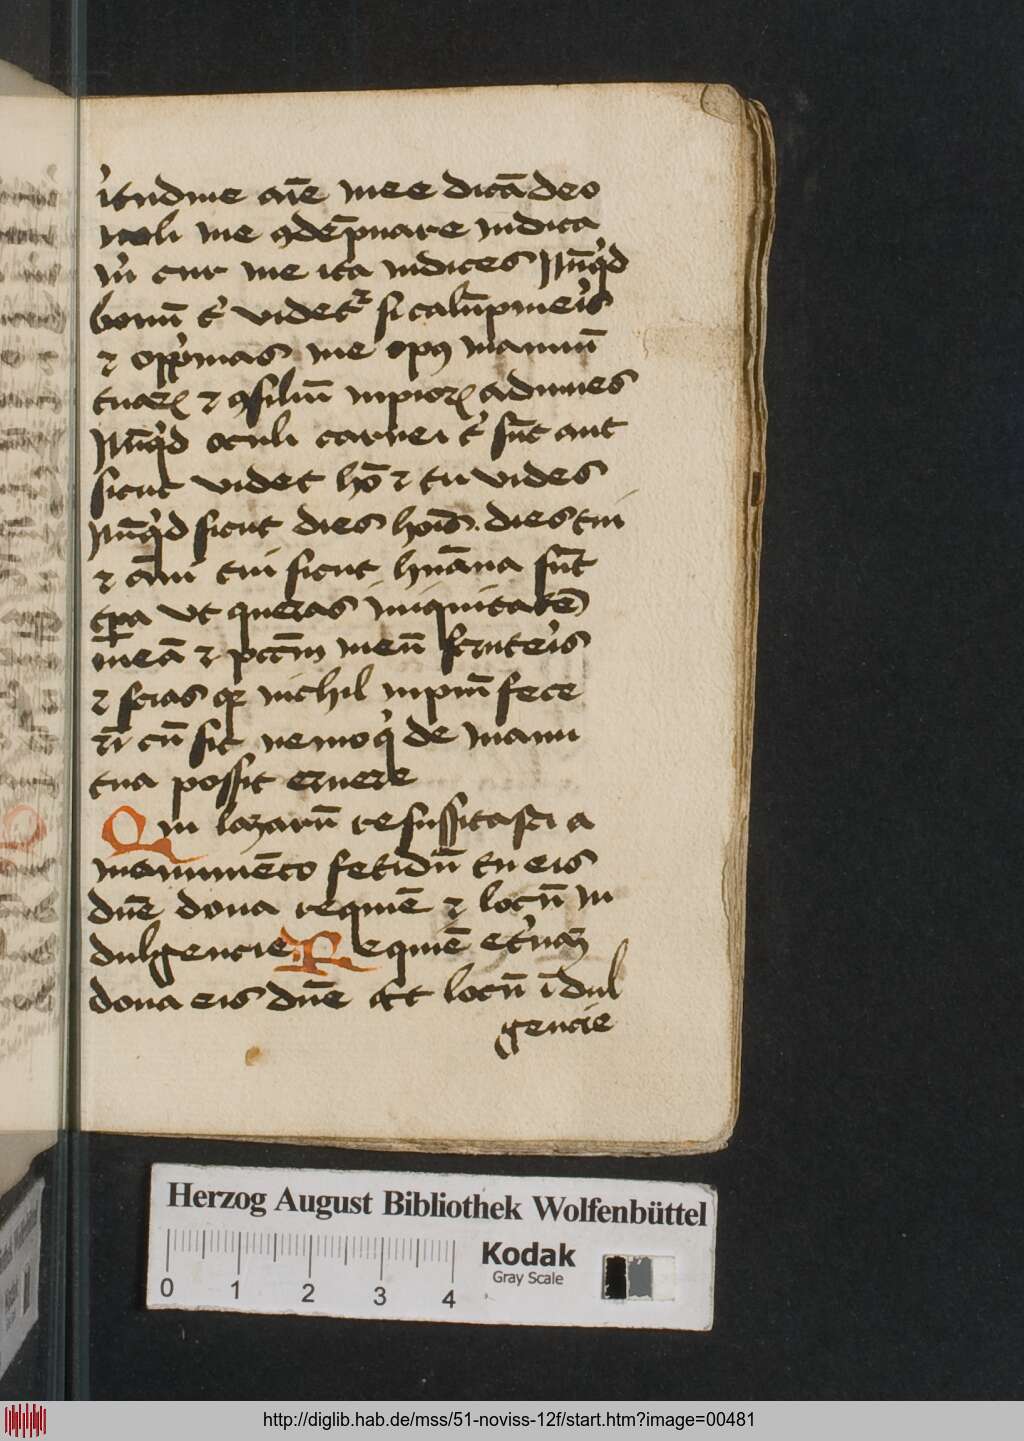 ritudine aīe mee dicā deo
noli me ꝯdēpnare indica
m̄ cur me ita iudices Nūqͥd
bonū tͥ videtᷣ si calūpnieris
⁊ oppͥmas me opꝰ manuū
tuaꝝ ⁊ ꝯsiliū inpioꝝ adiuues
Nūqͥd oculi carnei tͥ sūt aut
sicut videt hō ⁊ tu vides
Nūqͥd sicut dies hoīs dies tui
⁊ āni tui sicut hūana sūt
tꝑa vt queras iniquitatē
meā ⁊ pctm̄ meū scruteris
⁊ scias qꝫ nichil inpiū fece
rī cū sit nemo qͥ de manu
tua possit eruere
Qui lazarū resussitasti a
monumēto fetidū tu eis
dn̄e dona requiē ⁊ locū in
dulgencie Requiē et̾naꝫ
dona eis dn̄e et locū īdul
gencie
Herzog August Bibliothek Wolfenbüttel
Kodak
Gray Scale
0 1 2 3 4
http://diglib.hab.de/mss/51-noviss-12f/start.htm?image=00481